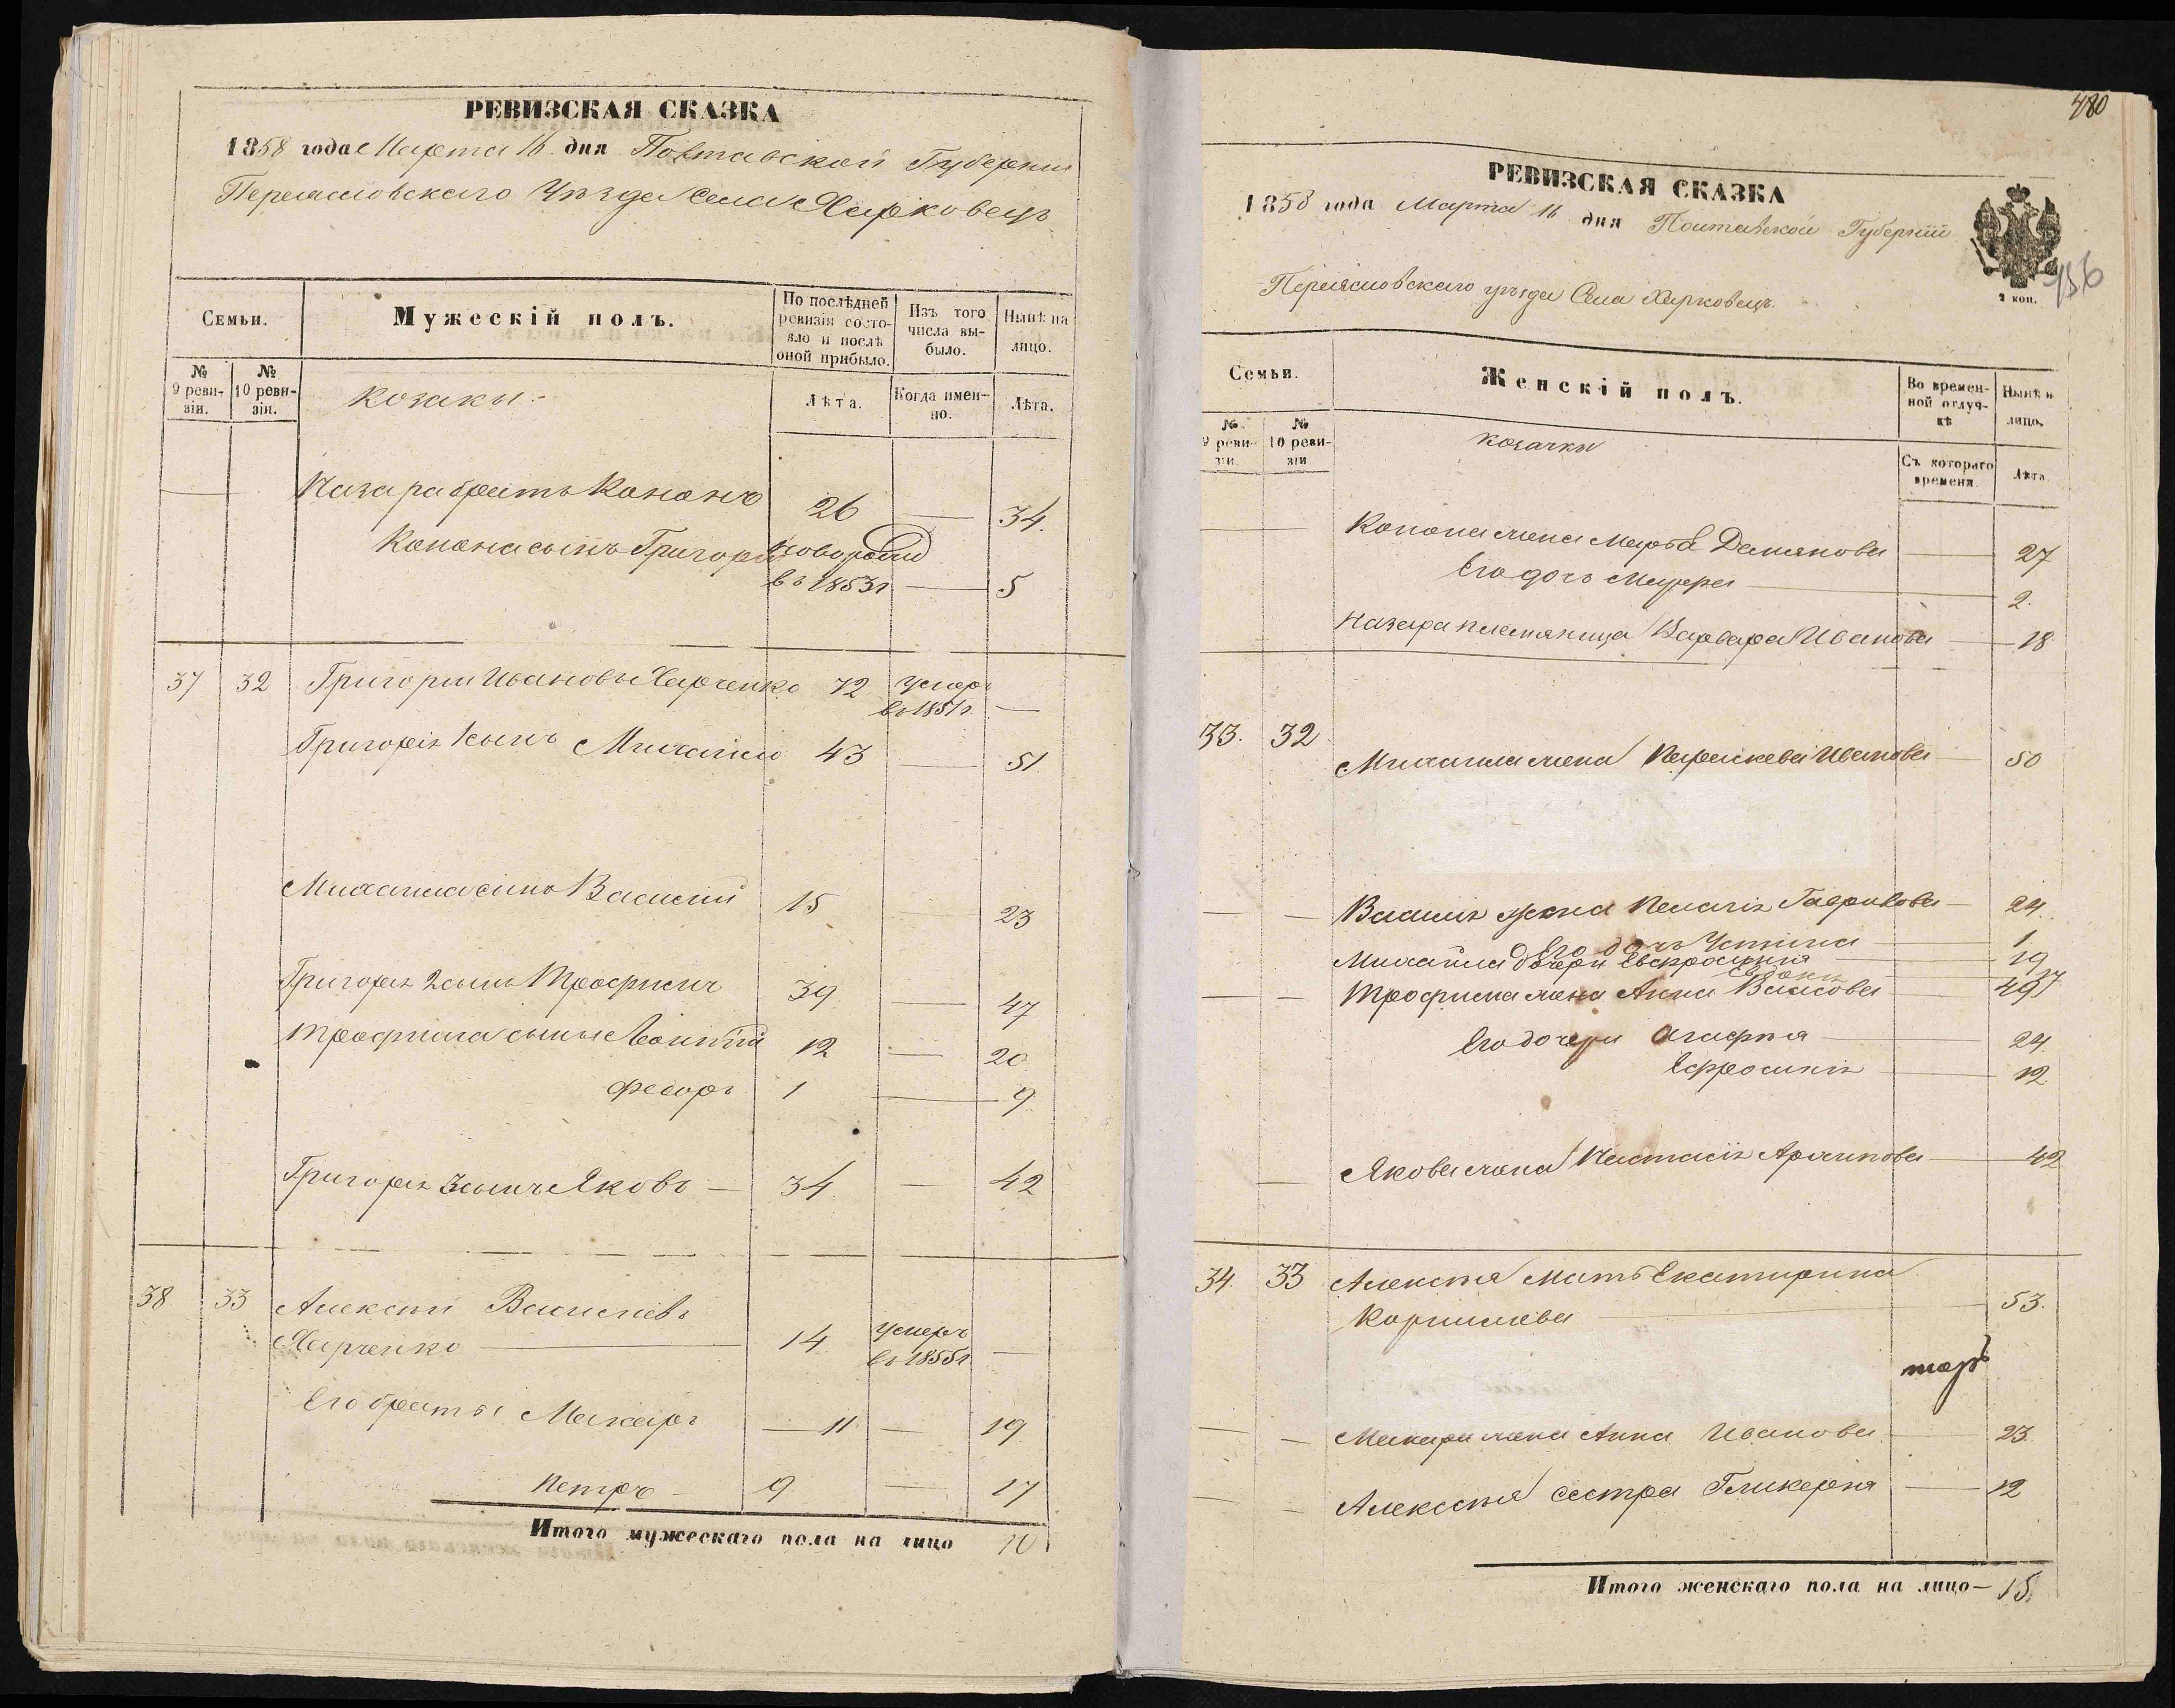 РЕВИЗСКАЯ СКАЗКА
1858 года Марта 16 дня Полтавской Губернии
Переяславского Уѣзда Села Харковецъ
Семьи.
Мужескій полъ.
По послѣдней ревизіи состояло и послѣ оной прибыло.
Изъ того числа выбыло.
Нынѣ на лицо.
№ 9 ревизіи.
№ 10 ревизіи.
козаки
Лѣта.
Когда именно.
Лѣта.
Назара братъ Кононъ 26 — 34.
Конона сынъ Григорій новорожд
въ 1853г. — 5
37 32 Григорій Ивановъ Харченко 72 умеръ
въ 1851г. —
Григорія 1 сынъ Михайло 43 — 51.
Михаила сынъ Василій 15 — 23
Григорія 2 сынъ Трофимъ 39 — 47
Трофима сыны Леонтій 12 — 20
Федоръ 1 — 9
Григорія 3 сынъ Яковъ — 34 — 42
38 33 Алексѣй Васильевъ
Харченко — 14 умеръ
въ 1855г. —
Его братья Макаръ — 11 — 19
Петръ — 9 — 17
Итого мужескаго пола на лицо 10
480
РЕВИЗСКАЯ СКАЗКА
1858 года Марта 16 дня Полтавской Губерніи
156
2 коп.
Переясловскаго уѣзда Села Харковецъ.
Семьи.
Женскій полъ.
Во временной отлучкѣ
Нынѣ н лицо.
№ 9 ревизіи
№ 10 ревизіи
козачки
Съ котораго времени.
Лѣта
Конона жена Марѳа Демянова — 27
Его дочь Мавра — 2.
Назара племяница Варвара Иванова — 18
33. 32
Михаила жена Параскева Иванова — 50
— — Василія жена Пелагія Гаврилова — 24.
Его дочь Устина — 1
Михайла дочери Евфросинія — 19
Евдокія 17
— — Трофима жена Анна Власова — 49
Его дочери Агафія — 24
Ефросинія — 12.
— Якова жена Настасія Архипова — 42
34. 33 Алексѣя Мать Екатирина
Корнилиева — 53.
— — Макара жена Анна Иванова — 23.
— — Алексѣя сестра Гликерія — 12
Итого женскаго пола на лицо — 15.